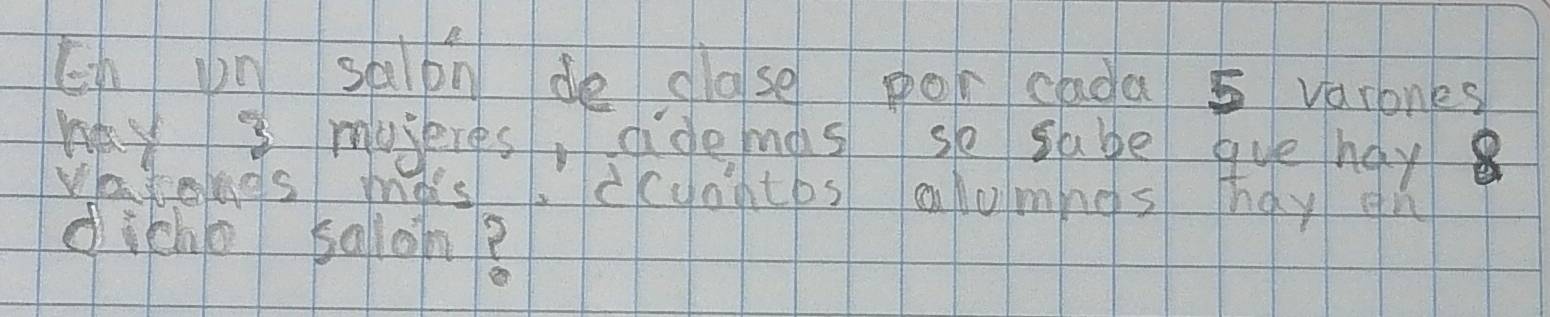 En un salón de clase por cada 5 varones
hay 3 mujeres, ademas se sabe que hay 8
varones más. ¿Cuántos alumnos hay en
dicho salón?